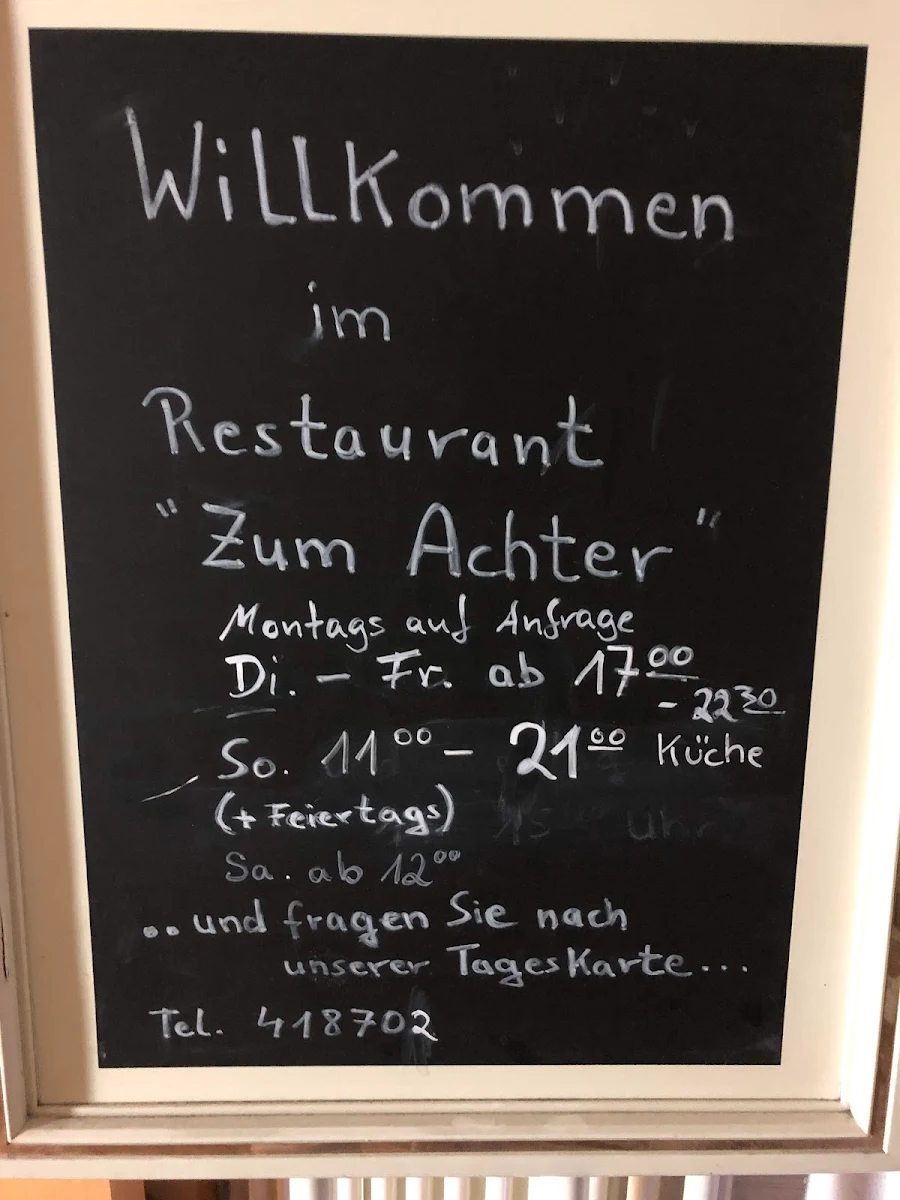 Willkommen
im
Restaurant
"Zum Achter"
Montags auf Anfrage
Di. - Fr. ab 17 00
- 22 30
So. 11 00 - 21 00 Küche
(+ Feiertags)
Sa. ab 12 00
.. und fragen Sie nach
unserer Tageskarte...
Tel. 418702